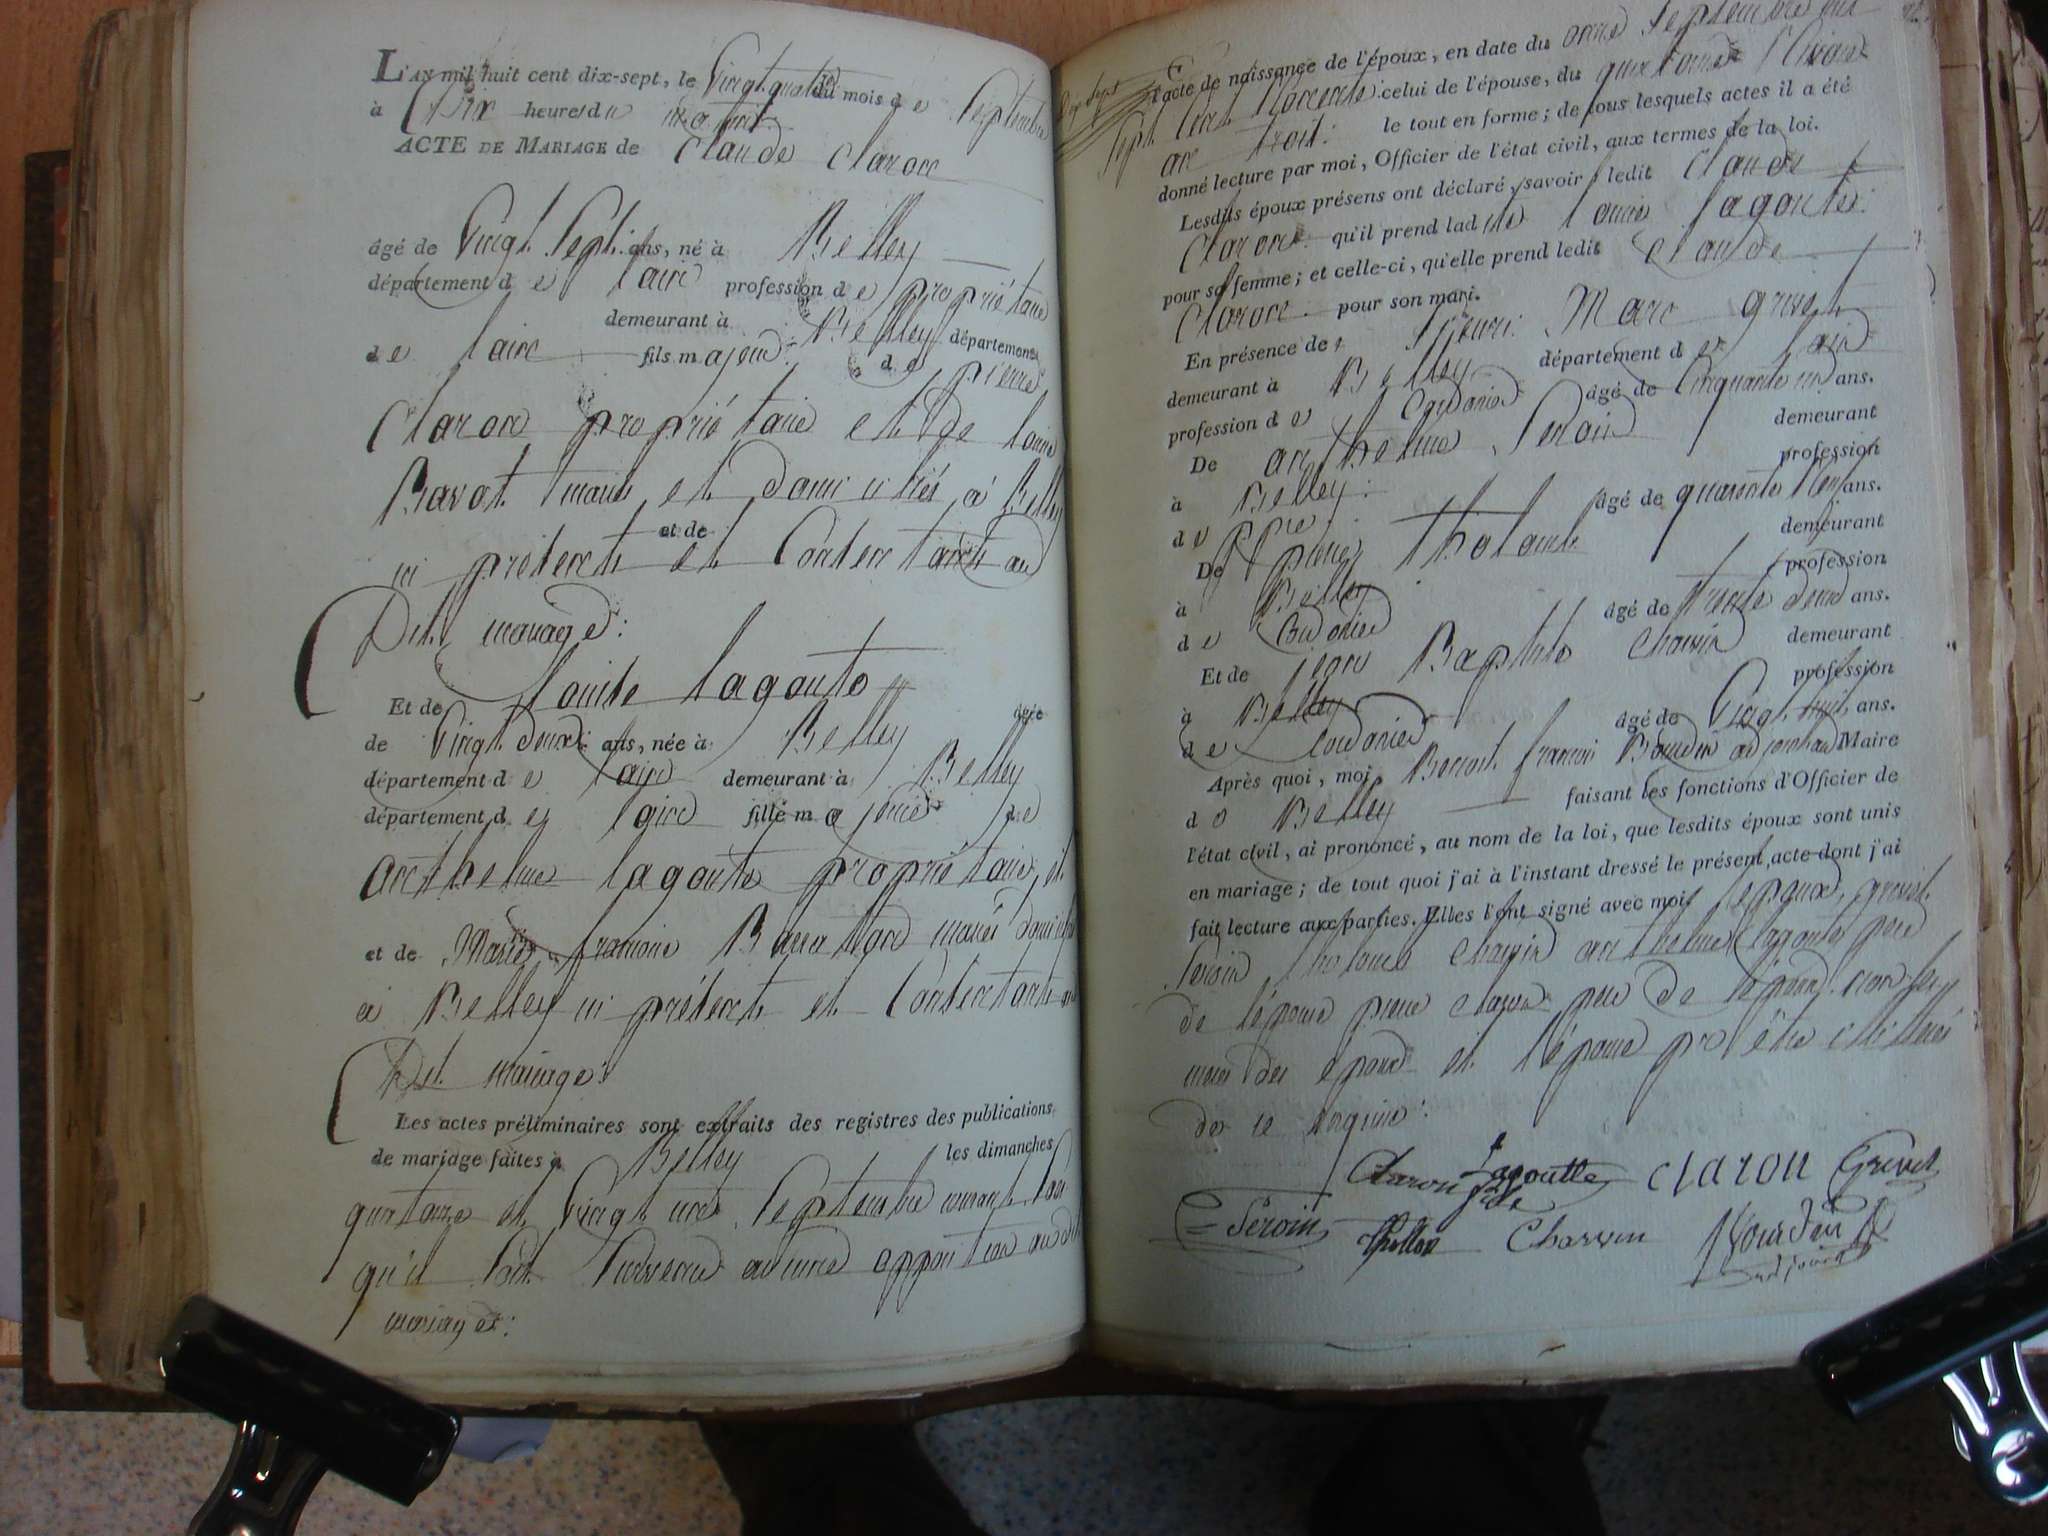 L'AN mil huit cent dix-sept, le Vingt quatre du mois de Septembre
à Dix heures du matin
ACTE DE MARIAGE de Claude Claron
âgé de Vingt Sept ans, né à Belley
département de lain profession de propriétaire
demeurant à Belley département
de lain fils majeur de pierre
Claron propriétaire et de louise
Bavot mariés et domiciliés à Belley
et de
ici présents et Consentants au
Dit mariage:
Et de louise lagoute âgée
de Vingt deux ans, née à Belley
département de lain demeurant à Belley
département de lain fille majeure de
anthelme lagoute propriétaire, et
et de Marie françoise mariés domiciliés
à Belley ici présents et Consentants au
Dit mariage:
Les actes préliminaires sont extraits des registres des publications
de mariage faites à Belley les dimanches
quatorze et Vingt un Septembre courant sans
qu'il soit Survenu aucune opposition au dit
mariage:
dix sept
l'acte de naissance de l'époux, en date du onze Septembre mil
Sept Cent Nonante celui de l'épouse, du quatorze Nivose
an trois: le tout en forme; de tous lesquels actes il a été
donné lecture par moi, Officier de l'état civil, aux termes de la loi.
Lesdits époux présens ont déclaré, savoir: ledit Claude
Claron qu'il prend ladite louise lagoute
pour sa femme; et celle-ci, qu'elle prend ledit Claude
Claron pour son mari.
En présence de henri Marc grivet
demeurant à Belley département de lain
profession de Cordonier âgé de Cinquante un ans.
De anthelme Peroin demeurant
à Belley: profession
de ppre âgé de quarante neuf ans.
De pierre tholomé demeurant
à Belley profession
de Cordonier âgé de trente deux ans.
Et de jean Baptiste Charvin demeurant
à Belley profession
de Cordonier âgé de Vingt huit ans.
Après quoi, moi Benoit françois Bourdin adjoint au Maire
de Belley faisant les fonctions d'Officier de
l'état civil, ai prononcé, au nom de la loi, que lesdits époux sont unis
en mariage; de tout quoi j'ai à l'instant dressé le présent acte dont j'ai
fait lecture aux parties. Elles l'ont signé avec moi lepoux, grivet
Peroin tholomé Charvin anthelme lagoute pere
de lépouse pierre claron pere de lépoux non les
meres des epoux et lépouse pr être illitérés
de ce enquise:
Claron fils Lagoutte claron Grivet
Peroin Thollon Charvin Bourdin
adjoint